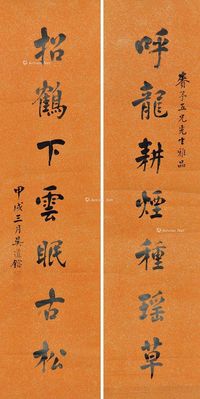 呼龍耕煙種瑤草
春谷五兄先生雅品
招鶴下雲眠古松
甲戌三月吳道鎔